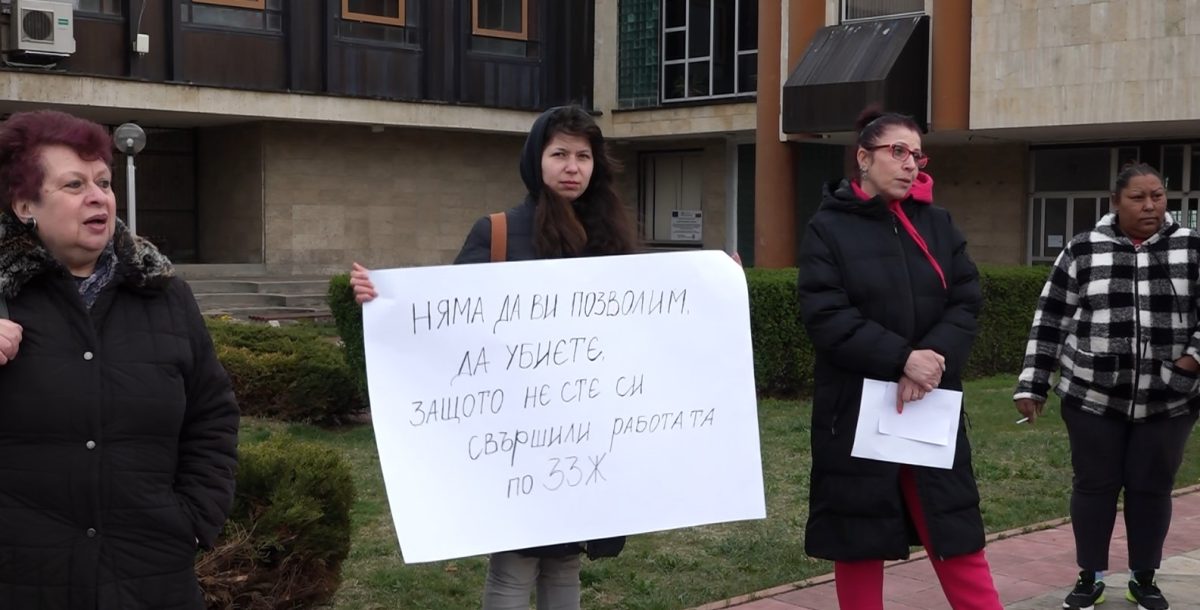 НЯМА ДА ВИ ПОЗВОЛИМ,
ДА УБИЕТЕ,
ЗАЩОТО НЕ СТЕ СИ
СВЪРШИЛИ РАБОТАТА
ПО ЗЗЖ